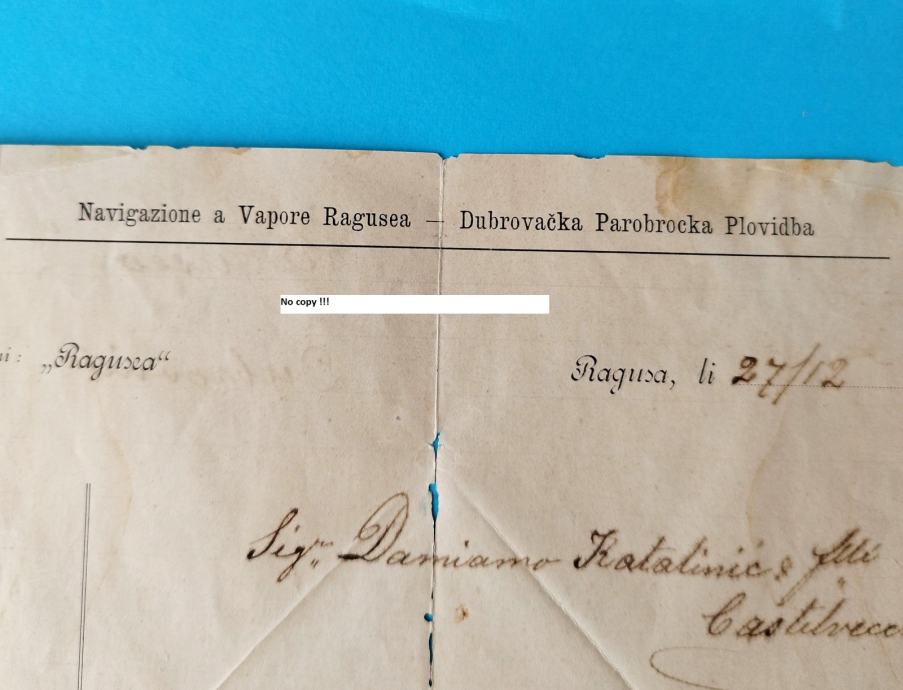 Navigazione a Vapore Ragusea — Dubrovačka Parobrocka Plovidba
No copy !!!
„Ragusea“
Ragusa, li 27/12
Sigr. Damiamo Katalinić e flli